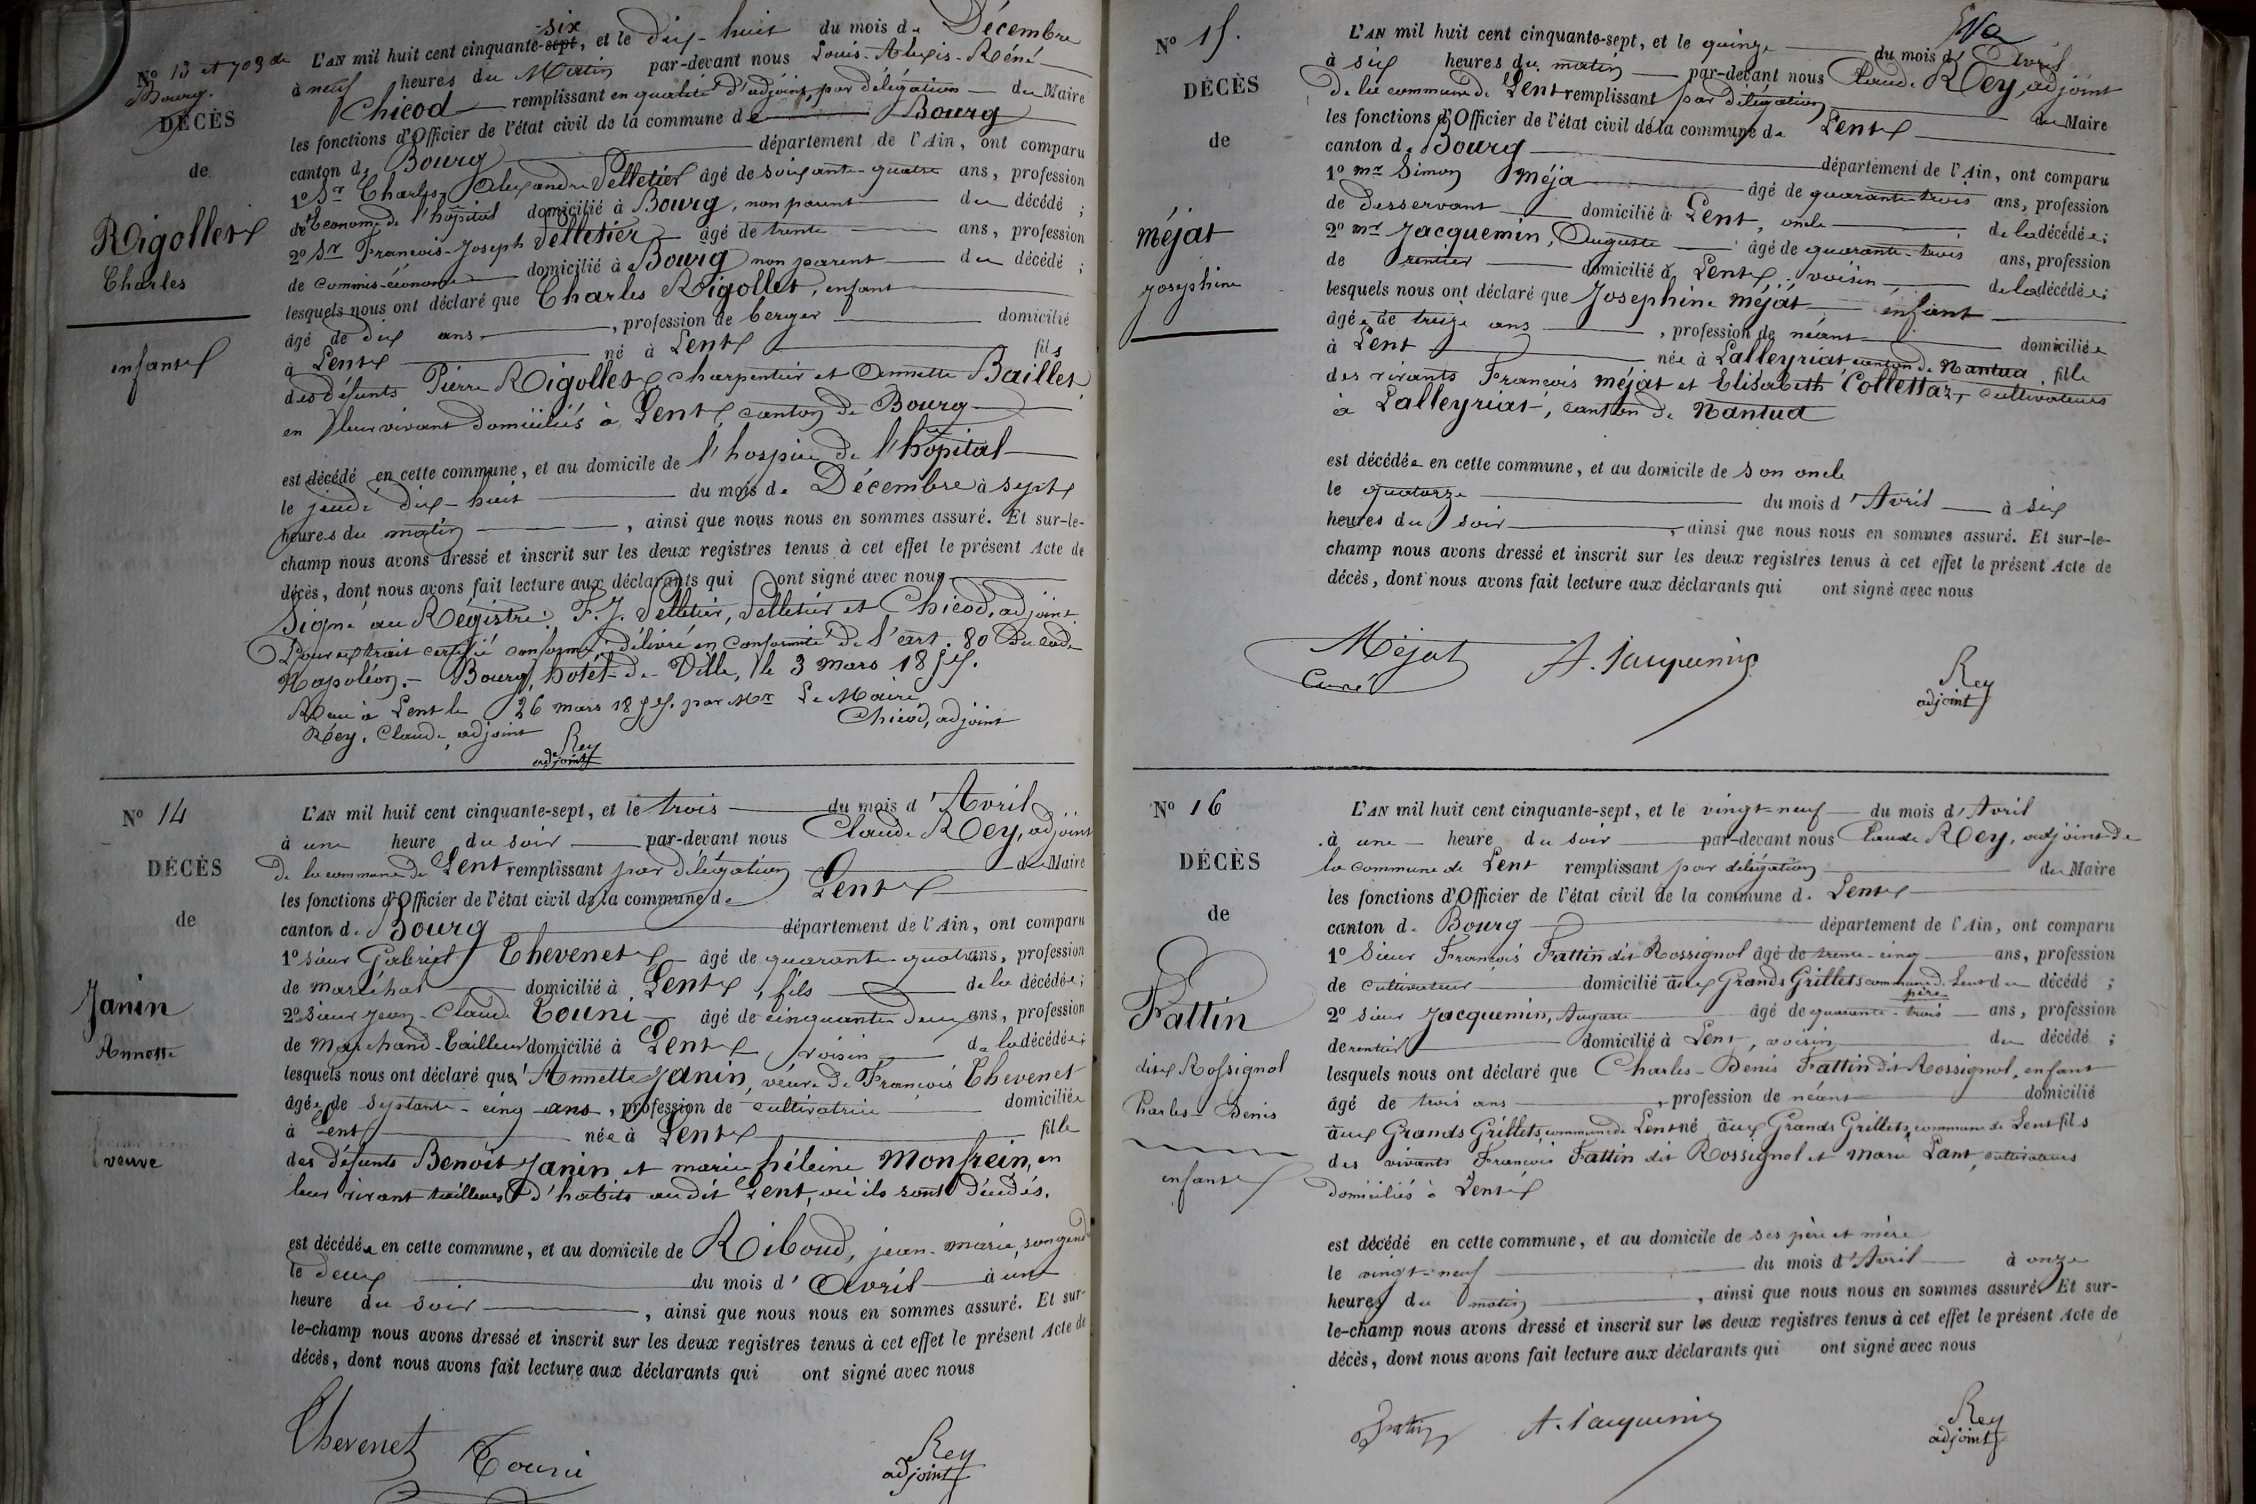 No 13 et 703 de
Bourg.
DÉCÈS
de
Rigollet
Charles
enfant
six
L'AN mil huit cent cinquante-sept, et le dix-huit du mois de Décembre
à neuf heures du Matin par-devant nous Louis-Alexis-Réné
Chicod remplissant en qualité d'adjoint, par délégation du Maire
les fonctions d'Officier de l'état civil de la commune de Bourg
canton de Bourg département de l'Ain, ont comparu
1º Sr Charles Alexandre Pelletier âgé de soixante-quatre ans, profession
de Econome de l'hôpital domicilié à Bourg, non parent du décédé ;
2º Sr François-Joseph Pelletier âgé de trente ans, profession
de commis-économe domicilié à Bourg non parent du décédé ;
lesquels nous ont déclaré que Charles Rigollet, enfant
âgé de dix ans, profession de berger domicilié
à Lent né à Lent fils
des défunts Pierre Rigollet charpentier et Annette Baillet
en leur vivant domiciliés à Lent, canton de Bourg
est décédé en cette commune, et au domicile de l'hospice de l'hôpital
le jeudi dix-huit du mois de Décembre à sept
heures du matin, ainsi que nous nous en sommes assuré. Et sur-le-
champ nous avons dressé et inscrit sur les deux registres tenus à cet effet le présent Acte de
décès, dont nous avons fait lecture aux déclarants qui ont signé avec nous
Signé au Régistre. F. J. Pelletier, Pelletier et Chicod, adjoint.
Pour extrait certifié conforme, délivré en conformité de l'art. 80 du code
Napoléon. - Bourg, hôtel-de-Ville, le 3 mars 1857.
Reçu à Lent le 26 mars 1857. par Mr Le Maire
Rey, Claude, adjoint Chicod, adjoint
Rey
adjoint
No 14
DÉCÈS
de
Janin
Annette
veuve
L'AN mil huit cent cinquante-sept, et le trois du mois d'Avril
à une heure du soir par-devant nous Claude Rey, adjoint
de la commune de Lent remplissant par délégation du Maire
les fonctions d'Officier de l'état civil de la commune de Lent
canton de Bourg département de l'Ain, ont comparu
1º sieur Gabriel Chevenet âgé de quarante-quatre ans, profession
de maréchal domicilié à Lent, fils de la décédée ;
2º sieur Jean-Claude Couni âgé de cinquante deux ans, profession
de Marchand-Tailleur domicilié à Lent, voisin de la décédée ;
lesquels nous ont déclaré que Annette Janin, veuve de François Chevenet
âgée de septante-cinq ans, profession de cultivatrice domiciliée
à Lent née à Lent fille
des défunts Benoît Janin et marie héleine Monfrein, en
leur vivant tailleurs d'habits audit Lent, où ils sont décédés.
est décédée en cette commune, et au domicile de Riboud, jean-marie, son gendre
le deux du mois d'Avril à une
heure du soir, ainsi que nous nous en sommes assuré. Et sur-
le-champ nous avons dressé et inscrit sur les deux registres tenus à cet effet le présent Acte de
décès, dont nous avons fait lecture aux déclarants qui ont signé avec nous
Chevenet Couni
Rey
adjoint
No 15.
DÉCÈS
de
méjat
josephine
L'AN mil huit cent cinquante-sept, et le quinze du mois d'Avril
à six heures du matin par-devant nous Claude Rey, adjoint
de la commune de Lent remplissant par délégation du Maire
les fonctions d'Officier de l'état civil de la commune de Lent
canton de Bourg département de l'Ain, ont comparu
1º mr Simon Méja âgé de quarante-trois ans, profession
de desservant domicilié à Lent, oncle de la décédée ;
2º mr Jacquemin, Auguste âgé de quarante-trois ans, profession
de rentier domicilié à Lent, voisin de la décédée ;
lesquels nous ont déclaré que Josephine Méjat, enfant
âgée de treize ans, profession de néant domiciliée
à Lent née à Lalleyriat canton de Nantua fille
des vivants François méjat et Elisabeth Collettaz, cultivateurs
à Lalleyriat, canton de Nantua
est décédée en cette commune, et au domicile de son oncle
le quatorze du mois d'Avril à six
heures du soir, ainsi que nous nous en sommes assuré. Et sur-le-
champ nous avons dressé et inscrit sur les deux registres tenus à cet effet le présent Acte de
décès, dont nous avons fait lecture aux déclarants qui ont signé avec nous
Méjat
Curé
A. Jacquemin
Rey
adjoint
No 16
DÉCÈS
de
Fattin
dit Rossignol
Charles-Denis
enfant
L'AN mil huit cent cinquante-sept, et le vingt-neuf du mois d'Avril
à une heure du soir par-devant nous Claude Rey, adjoint de
la commune de Lent remplissant par délégation du Maire
les fonctions d'Officier de l'état civil de la commune de Lent
canton de Bourg département de l'Ain, ont comparu
1º Sieur François Fattin dit Rossignol âgé de trente-cinq ans, profession
de cultivateur domicilié aux Grands Grillets commune de Lent du décédé ;
père
2º sieur Jacquemin, Auguste âgé de quarante-trois ans, profession
de rentier domicilié à Lent, voisin du décédé ;
lesquels nous ont déclaré que Charles-Denis Fattin dit Rossignol, enfant
âgé de trois ans, profession de néant domicilié
aux Grands Grillets, commune de Lent né aux Grands Grillets, commune de Lent fils
des vivants François Fattin dit Rossignol et marie Lant, cultivateurs
domiciliés à Lent
est décédé en cette commune, et au domicile de ses père et mère
le vingt-neuf du mois d'Avril à onze
heures du matin, ainsi que nous nous en sommes assuré. Et sur-
le-champ nous avons dressé et inscrit sur les deux registres tenus à cet effet le présent Acte de
décès, dont nous avons fait lecture aux déclarants qui ont signé avec nous
A. Jacquemin
Rey
adjoint